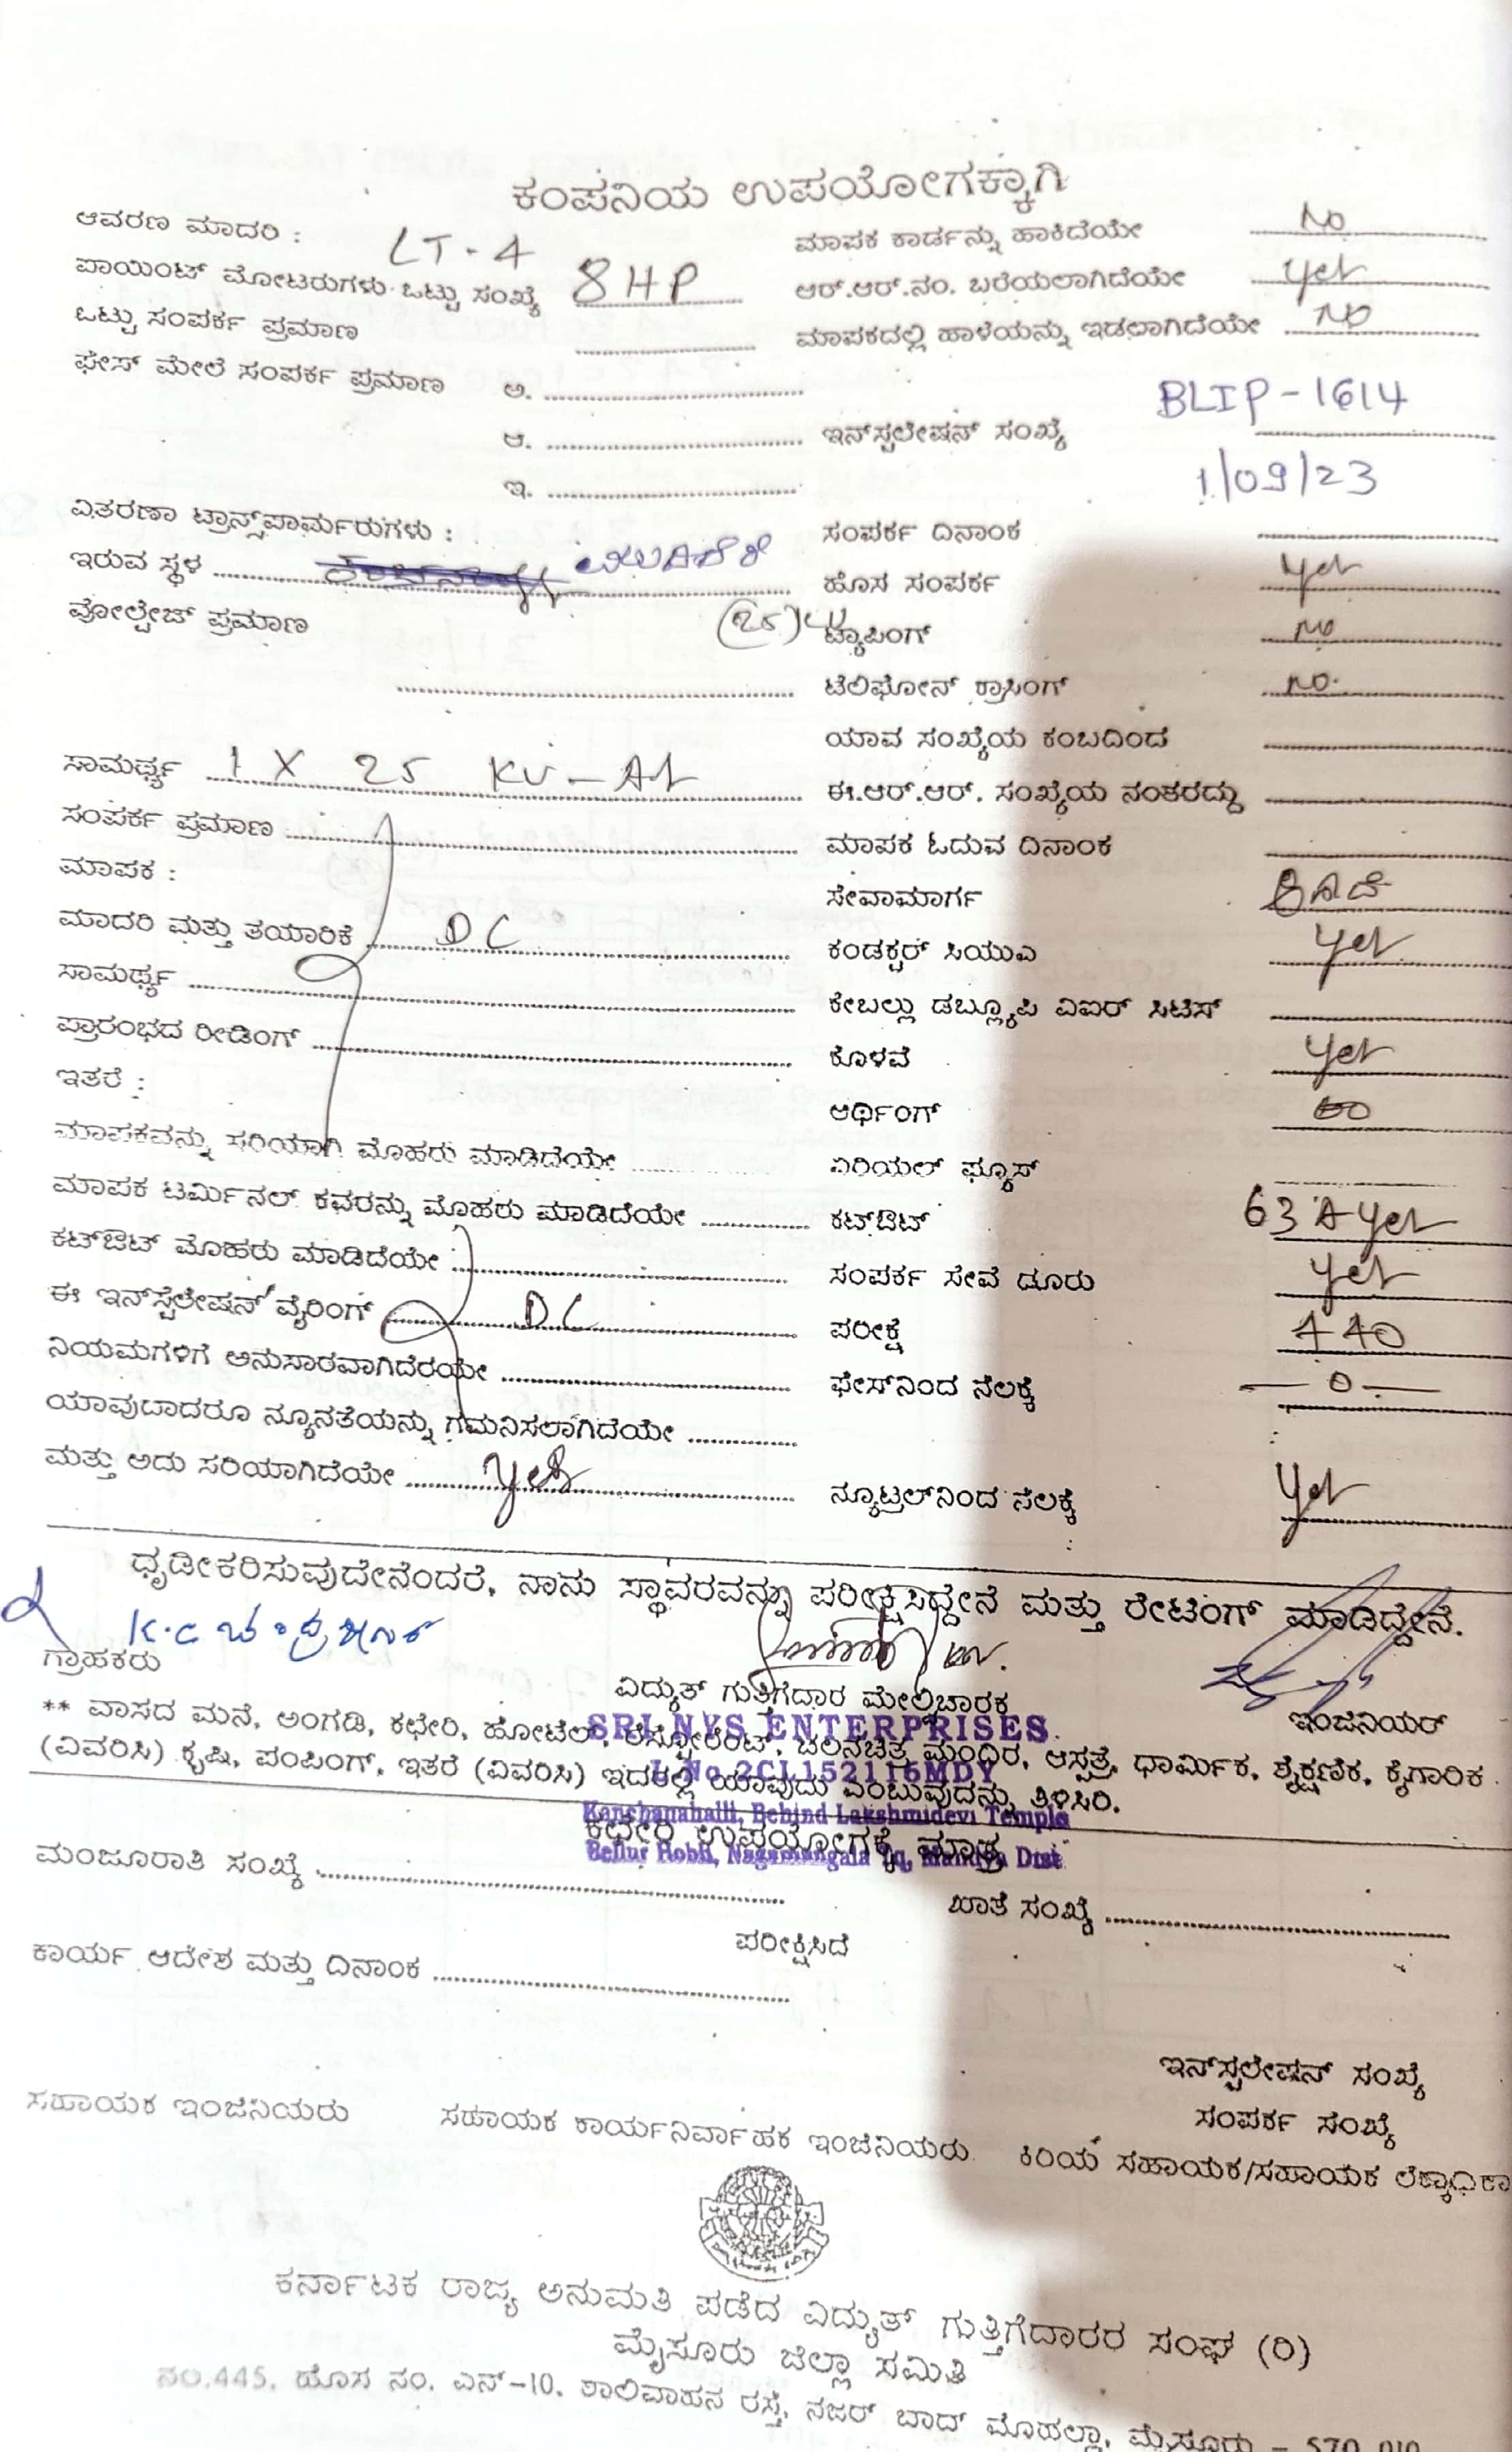 ಕಂಪನಿಯ ಉಪಯೋಗಕ್ಕಾಗಿ
ಆವರಣ ಮಾದರಿ : LT-4 ಮಾಪಕ ಕಾರ್ಡನ್ನು ಹಾಕಿದೆಯೇ No
ಪಾಯಿಂಟ್ ಮೋಟರುಗಳು ಒಟ್ಟು ಸಂಖ್ಯೆ 8 HP ಆರ್.ಆರ್.ನಂ. ಬರೆಯಲಾಗಿದೆಯೇ Yes
ಒಟ್ಟು ಸಂಪರ್ಕ ಪ್ರಮಾಣ ಮಾಪಕದಲ್ಲಿ ಹಾಳೆಯನ್ನು ಇಡಲಾಗಿದೆಯೇ No
ಫೇಸ್ ಮೇಲೆ ಸಂಪರ್ಕ ಪ್ರಮಾಣ ಅ.
BLIP-1614
ಆ. ಇನ್‌ಸ್ಟಲೇಷನ್ ಸಂಖ್ಯೆ
ಇ. 1/09/23
ವಿತರಣಾ ಟ್ರಾನ್ಸ್‌ಫಾರ್ಮರುಗಳು : ಸಂಪರ್ಕ ದಿನಾಂಕ
ಇರುವ ಸ್ಥಳ ಹೊಸ ಸಂಪರ್ಕ Yes
ವೋಲ್ಟೇಜ್ ಪ್ರಮಾಣ (25) ಟ್ಯಾಪಿಂಗ್ No
ಟೆಲಿಫೋನ್ ಕ್ರಾಸಿಂಗ್ No
ಯಾವ ಸಂಖ್ಯೆಯ ಕಂಬದಿಂದ
ಸಾಮರ್ಥ್ಯ 1 X 25 KV-A ಈ.ಆರ್.ಆರ್. ಸಂಖ್ಯೆಯ ನಂತರದ್ದು
ಸಂಪರ್ಕ ಪ್ರಮಾಣ ಮಾಪಕ ಓದುವ ದಿನಾಂಕ
ಮಾಪಕ : ಸೇವಾಮಾರ್ಗ
ಮಾದರಿ ಮತ್ತು ತಯಾರಿಕೆ DC ಕಂಡಕ್ಟರ್ ಸಿಯುಎ Yes
ಸಾಮರ್ಥ್ಯ ಕೇಬಲ್ಲು ಡಬ್ಲ್ಯೂಪಿ ವಿಐಆರ್ ಸಿಟಿಸ್
ಪ್ರಾರಂಭದ ರೀಡಿಂಗ್ ಕೊಳವೆ Yes
ಇತರೆ : ಆರ್ಥಿಂಗ್
ಮಾಪಕವನ್ನು ಸರಿಯಾಗಿ ಮೊಹರು ಮಾಡಿದೆಯೇ ಏರಿಯಲ್ ಫ್ಯೂಸ್
ಮಾಪಕ ಟರ್ಮಿನಲ್ ಕವರನ್ನು ಮೊಹರು ಮಾಡಿದೆಯೇ ಕಟ್‌ಔಟ್ 63 A Yes
ಕಟ್‌ಔಟ್ ಮೊಹರು ಮಾಡಿದೆಯೇ : ಸಂಪರ್ಕ ಸೇವೆ ದೂರು Yes
ಈ ಇನ್‌ಸ್ಟೆಲೇಷನ್ ವೈರಿಂಗ್ DC ಪರೀಕ್ಷೆ 440
ನಿಯಮಗಳಿಗೆ ಅನುಸಾರವಾಗಿದೆರಯೇ ಫೇಸ್‌ನಿಂದ ನೆಲಕ್ಕೆ — 0 —
ಯಾವುದಾದರೂ ನ್ಯೂನತೆಯನ್ನು ಗಮನಿಸಲಾಗಿದೆಯೇ
ಮತ್ತು ಅದು ಸರಿಯಾಗಿದೆಯೇ Yes ನ್ಯೂಟ್ರಲ್‌ನಿಂದ ನೆಲಕ್ಕೆ Yes
ಧೃಡೀಕರಿಸುವುದೇನೆಂದರೆ, ನಾನು ಸ್ಥಾವರವನ್ನು ಪರೀಕ್ಷಿಸಿದ್ದೇನೆ ಮತ್ತು ರೇಟಿಂಗ್ ಮಾಡಿದ್ದೇನೆ.
K.C
ಗ್ರಾಹಕರು ವಿದ್ಯುತ್ ಗುತ್ತಿಗೆದಾರ ಮೇಲ್ವಿಚಾರಕ ಇಂಜಿನಿಯರ್
SRI NVS ENTERPRISES
** ವಾಸದ ಮನೆ, ಅಂಗಡಿ, ಕಛೇರಿ, ಹೋಟೆಲ್, ರೆಸ್ಟೋರೆಂಟ್, ಚಲನಚಿತ್ರ ಮಂದಿರ, ಆಸ್ಪತ್ರೆ, ಧಾರ್ಮಿಕ, ಶೈಕ್ಷಣಿಕ, ಕೈಗಾರಿಕ
L No.2CL152116MDY
(ವಿವರಿಸಿ) ಕೃಷಿ, ಪಂಪಿಂಗ್, ಇತರೆ (ವಿವರಿಸಿ) ಇದರಲ್ಲಿ ಯಾವುದು ಎಂಬುವುದನ್ನು ತಿಳಿಸಿರಿ.
Kanchanahalli, Behind Lakshmidevi Temple
ಕಛೇರಿ ಉಪಯೋಗಕ್ಕೆ ಮಾತ್ರ
Bellur Hobli, Nagamangala Tq, Mandya Dist
ಮಂಜೂರಾತಿ ಸಂಖ್ಯೆ ಖಾತೆ ಸಂಖ್ಯೆ
ಪರೀಕ್ಷಿಸಿದೆ
ಕಾರ್ಯ ಆದೇಶ ಮತ್ತು ದಿನಾಂಕ
ಇನ್‌ಸ್ಟಲೇಷನ್ ಸಂಖ್ಯೆ
ಸಂಪರ್ಕ ಸಂಖ್ಯೆ
ಸಹಾಯಕ ಇಂಜಿನಿಯರು ಸಹಾಯಕ ಕಾರ್ಯನಿರ್ವಾಹಕ ಇಂಜಿನಿಯರು ಕಿರಿಯ ಸಹಾಯಕ/ಸಹಾಯಕ ಲೆಕ್ಕಾಧಿಕಾ
ಕರ್ನಾಟಕ ರಾಜ್ಯ ಅನುಮತಿ ಪಡೆದ ವಿದ್ಯುತ್ ಗುತ್ತಿಗೆದಾರರ ಸಂಘ (ರಿ)
ಮೈಸೂರು ಜಿಲ್ಲಾ ಸಮಿತಿ
ನಂ.445, ಹೊಸ ನಂ. ಎನ್-10, ಶಾಲಿವಾಹನ ರಸ್ತೆ, ನಜರ್ ಬಾದ್ ಮೊಹಲ್ಲಾ, ಮೈಸೂರು - 570 010